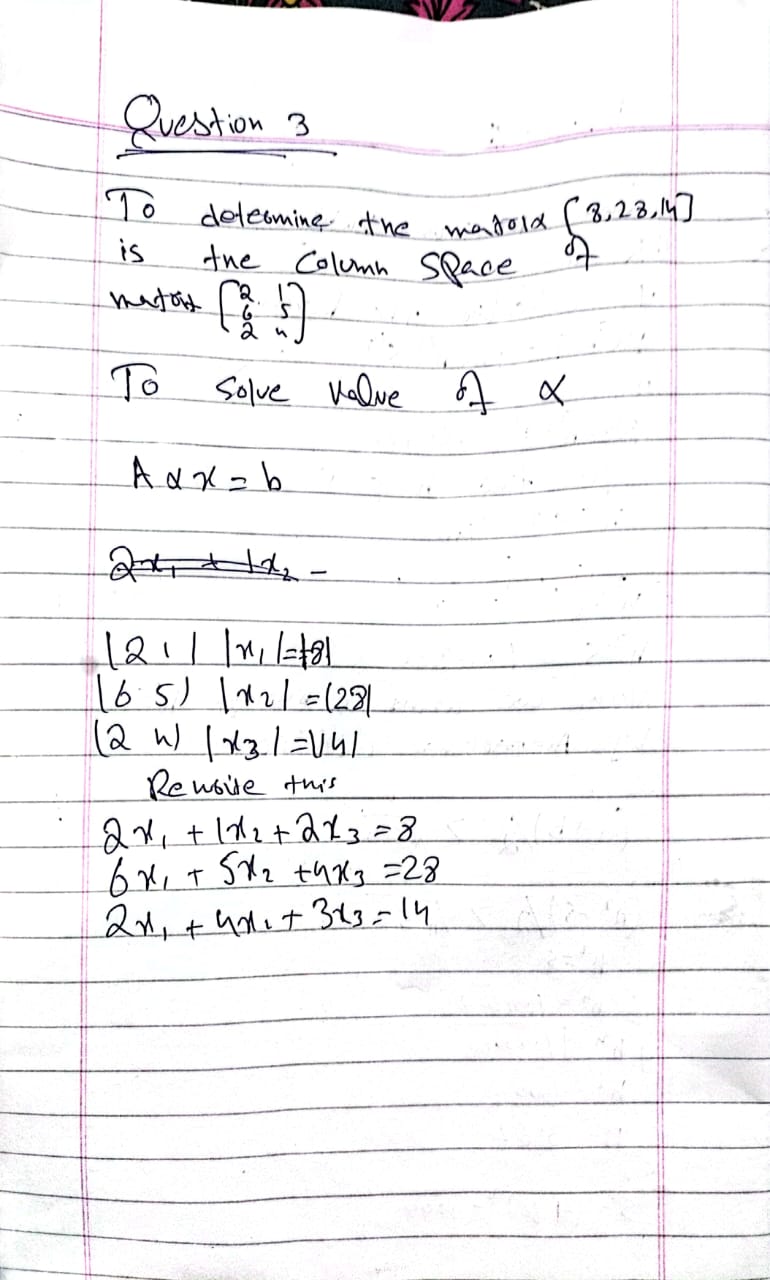 Question 3
To determine the matrix [8,28,14]
is the Column Space of
matrix [2 1
6 5
2 4]
To Solve Value of α
A α x = b
2x₁ + 1x₂ -
|2 1| |x₁|=|8|
|6 5) |x₂| =(28|
(2 4) |x₃|=|14|
Rewrite this
2x₁ + 1x₂ + 2x₃ = 8
6x₁ + 5x₂ + 4x₃ = 28
2x₁ + 4x₂ + 3x₃ = 14